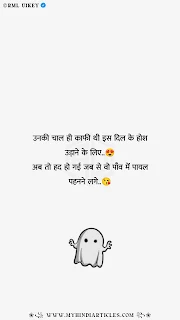 ©RML UIKEY
उनकी चाल ही काफी थी इस दिल के होश
उड़ाने के लिए..😍
अब तो हद हो गई जब से वो पाँव में पायल
पहनने लगे..😘
WWW.MYHINDIARTICLES.COM